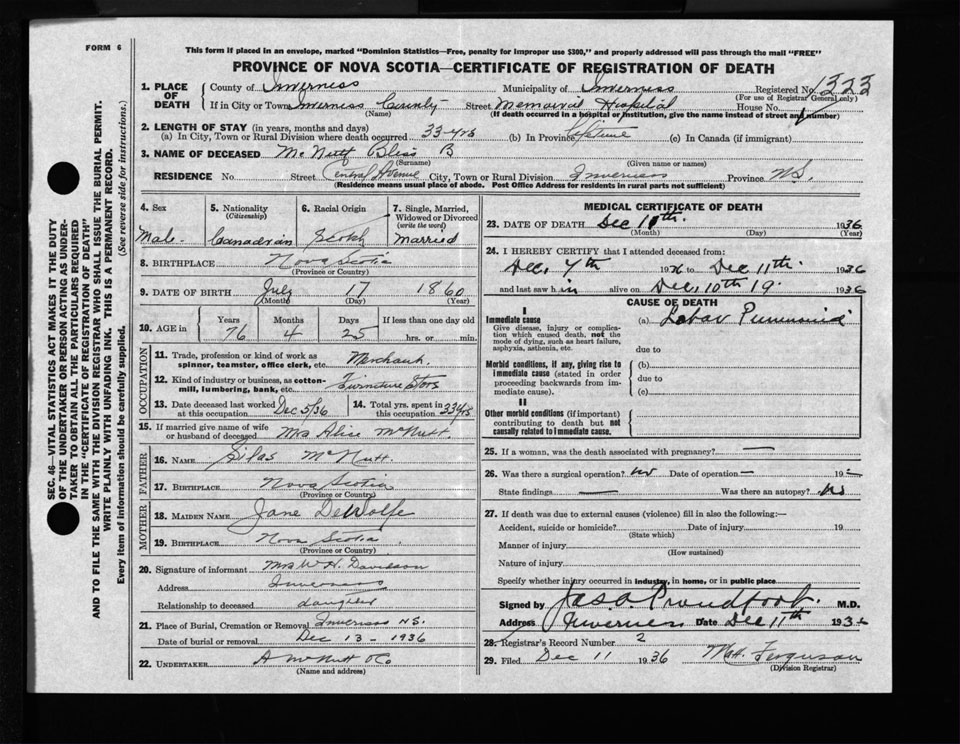 FORM 6
This form if placed in an envelope, marked "Dominion Statistics—Free, penalty for improper use $300," and properly addressed will pass through the mail "FREE"
PROVINCE OF NOVA SCOTIA—CERTIFICATE OF REGISTRATION OF DEATH
1. PLACE OF DEATH County of Inverness Municipality of Inverness Registered No. 1323
(For use of Registrar General only)
If in City or Town Inverness County Street Memorial Hospital House No.
(Name) (If death occurred in a hospital or institution, give the name instead of street and number)
2. LENGTH OF STAY (in years, months and days)
(a) In City, Town or Rural Division where death occurred 33 yrs (b) In Province Lifetime (c) In Canada (if immigrant)
3. NAME OF DECEASED McNutt Bliss B
(Surname) (Given name or names)
RESIDENCE No. Street Central Avenue City, Town or Rural Division Inverness Province N.S.
(Residence means usual place of abode. Post Office Address for residents in rural parts not sufficient)
SEC. 46—VITAL STATISTICS ACT MAKES IT THE DUTY
OF THE UNDERTAKER OR PERSON ACTING AS UNDER-
TAKER TO OBTAIN ALL THE PARTICULARS REQUIRED
IN THE "CERTIFICATE OF REGISTRATION OF DEATH"
AND TO FILE THE SAME WITH THE DIVISION REGISTRAR WHO SHALL ISSUE THE BURIAL PERMIT.
WRITE PLAINLY WITH UNFADING INK. THIS IS A PERMANENT RECORD.
Every item of information should be carefully supplied. (See reverse side for instructions.)
4. Sex 5. Nationality (Citizenship) 6. Racial Origin 7. Single, Married, Widowed or Divorced (write the word)
Male Canadian Scotch Married
8. BIRTHPLACE Nova Scotia
(Province or Country)
9. DATE OF BIRTH July 17 1860
(Month) (Day) (Year)
10. AGE in Years Months Days If less than one day old
76 4 25 hrs. or min.
OCCUPATION
11. Trade, profession or kind of work as spinner, teamster, office clerk, etc. Merchant
12. Kind of industry or business, as cotton-mill, lumbering, bank, etc. Furniture Store
13. Date deceased last worked at this occupation Dec 5/36 14. Total yrs. spent in this occupation 33 yrs
15. If married give name of wife or husband of deceased Mrs Alice McNutt.
FATHER
16. NAME Silas McNutt.
17. BIRTHPLACE Nova Scotia
(Province or Country)
MOTHER
18. MAIDEN NAME Jane DeWolfe
19. BIRTHPLACE Nova Scotia
(Province or Country)
20. Signature of informant Mrs W.H. Davidson
Address Inverness
Relationship to deceased daughter
21. Place of Burial, Cremation or Removal Inverness N.S.
Date of burial or removal Dec 13 - 1936
22. UNDERTAKER A McNutt & Co
(Name and address)
MEDICAL CERTIFICATE OF DEATH
23. DATE OF DEATH Dec 1936
(Month) (Day) (Year)
24. I HEREBY CERTIFY that I attended deceased from:
Dec. 7th 1936 to Dec 11th 1936
and last saw h im alive on Dec. 10th 19. 1936
CAUSE OF DEATH
I
Immediate cause (a) Lobar Pneumonia
Give disease, injury or complication which caused death, not the mode of dying, such as heart failure, asphyxia, asthenia, etc. due to
Morbid conditions, if any, giving rise to immediate cause (stated in order proceeding backwards from immediate cause). (b)
due to
(c)
II
Other morbid conditions (if important) contributing to death but not causally related to immediate cause.
25. If a woman, was the death associated with pregnancy? —
26. Was there a surgical operation? no Date of operation — 19 —
State findings — Was there an autopsy? No
27. If death was due to external causes (violence) fill in also the following:—
Accident, suicide or homicide? Date of injury 19
(State which)
Manner of injury
(How sustained)
Nature of injury
Specify whether injury occurred in industry, in home, or in public place
Signed by Jas. O. Proudfoot M.D.
Address Inverness Date Dec 11th 1936
28. Registrar's Record Number 2
29. Filed Dec 11 1936 Ferguson
(Division Registrar)